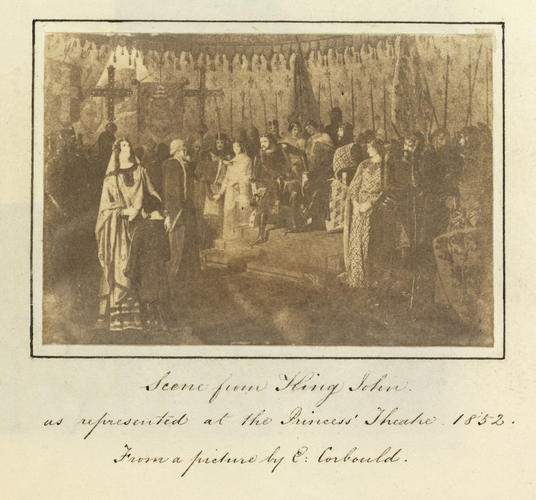 Scene from King John.
as represented at the Princess' Theatre. 1852.
From a picture by E: Corbould.